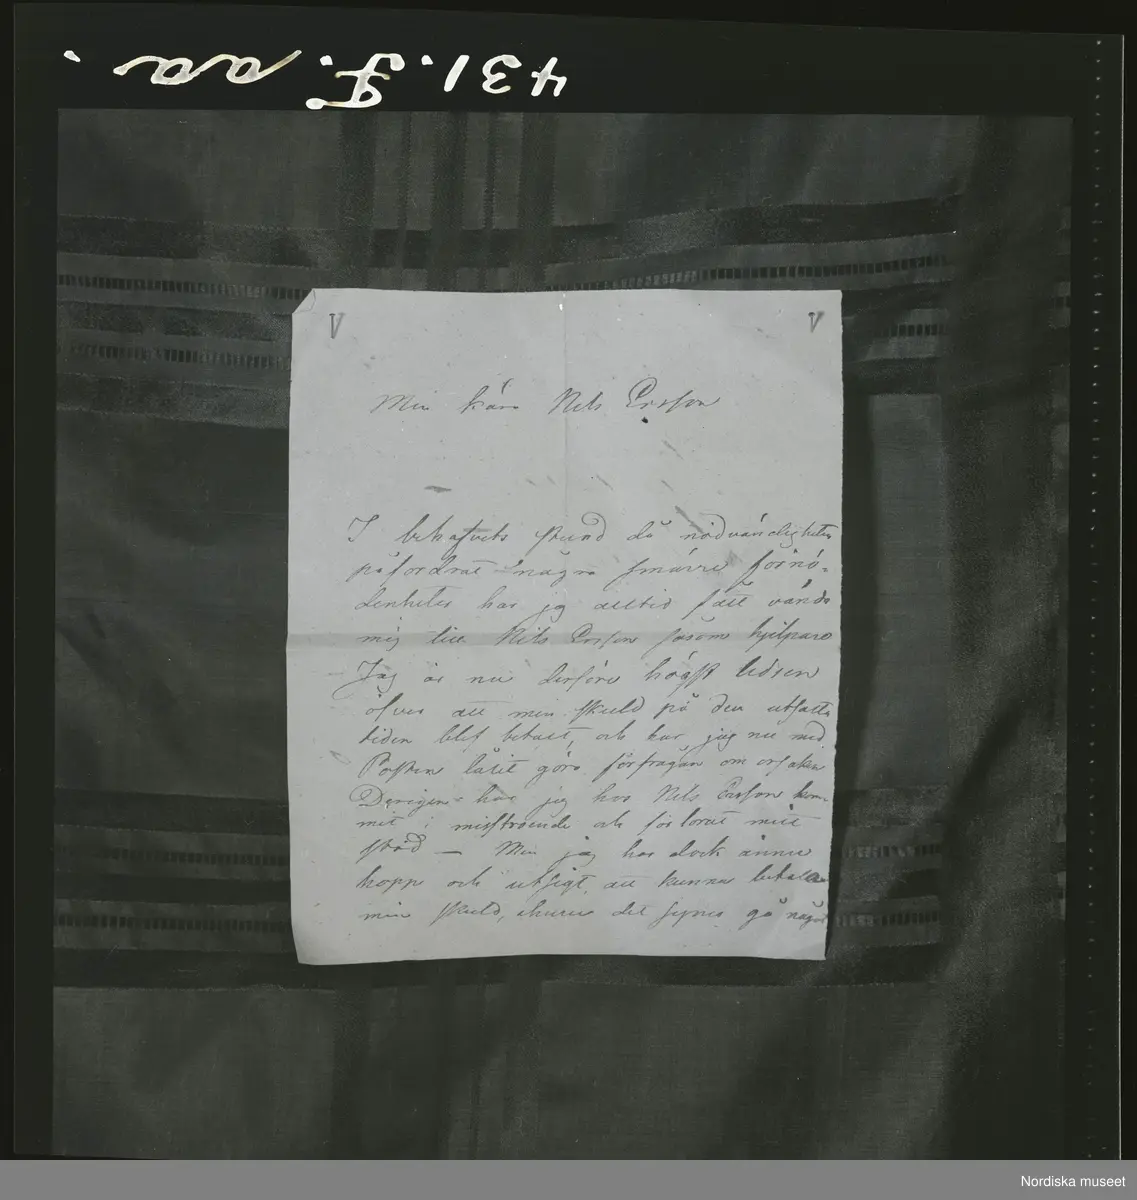 431. F. aa.
V V
Min kära Nils Ersson
I behofvets stund då nödvändigheten
påfordrat några smärre förnö-
denheter har jag alltid fått vända
mig till Nils Ersson såsom hjelpare
Jag är nu derföre högst ledsen
öfver att min skuld på den utsatta
tiden blef betalt, och har jag nu med
Posten låtit göra förfrågan om orsaken
har jag hos Nils Ersson kom-
mit i misstroende och förlorat mitt
stöd — Men jag har dock ännu
hopp och utsigt att kunna betala
min skuld, ehuru det synes gå något
Nordiska museet